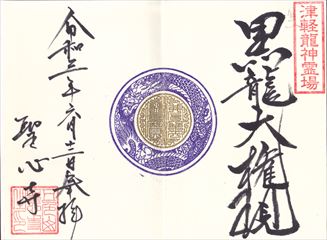 津軽龍神霊場
黒龍大権現
令和三年六月三日奉拝
聖心寺